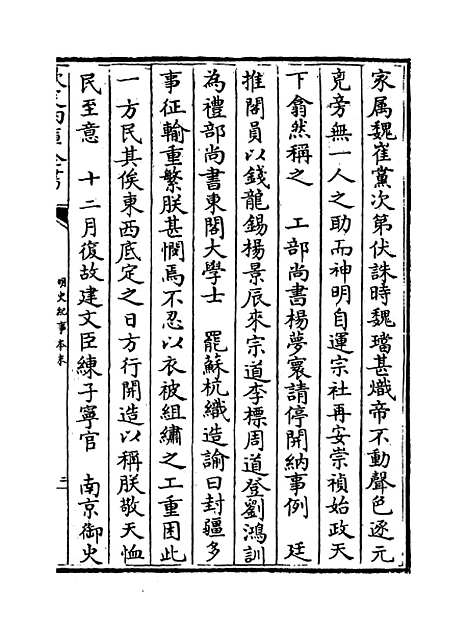 家属魏崔黨次第伏誅時魏璫甚熾帝不動聲色逐元
兇旁無一人之助而神明自運宗社再安崇禎始政天
下翕然稱之　工部尚書楊夢寰請停開納事例　廷
推閣員以錢龍錫楊景辰來宗道李標周道登劉鴻訓
為禮部尚書東閣大學士　罷蘇杭織造諭曰封疆多
事征輸重繁朕甚憫焉不忍以衣被組繡之工重困此
一方民其俟東西底定之日方行開造以稱朕敬天恤
民至意　十二月復故建文臣練子寧官　南京御史
欽定四庫全書
明史紀事本末
二